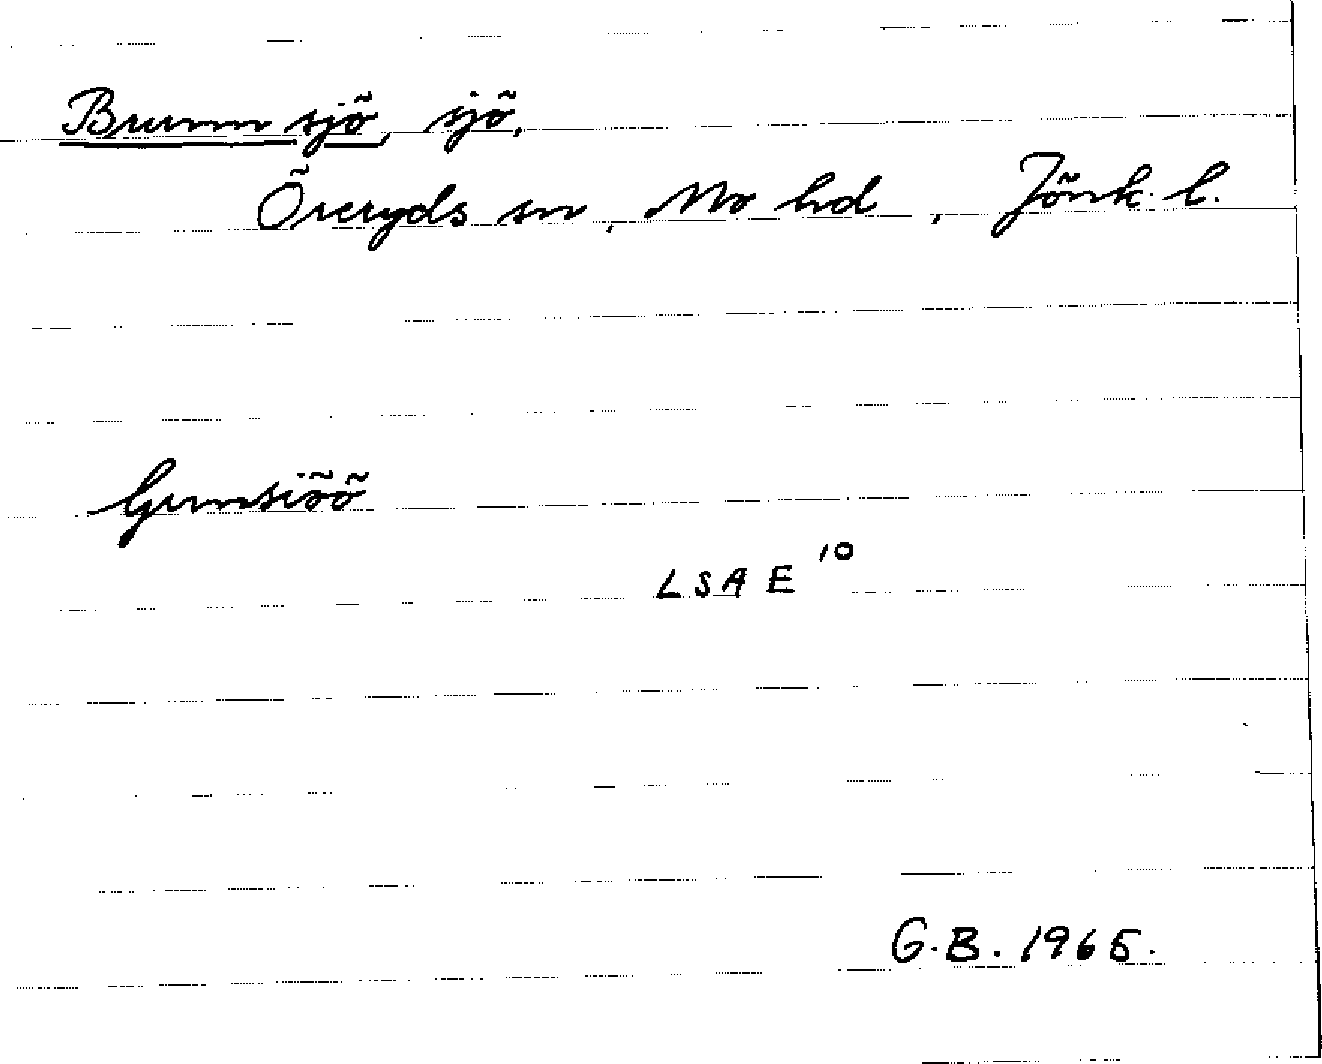 Brunnsjö, sjö,
Öreryds sn, Mo hd, Jönk. l.
LSA E 10
G.B. 1965.